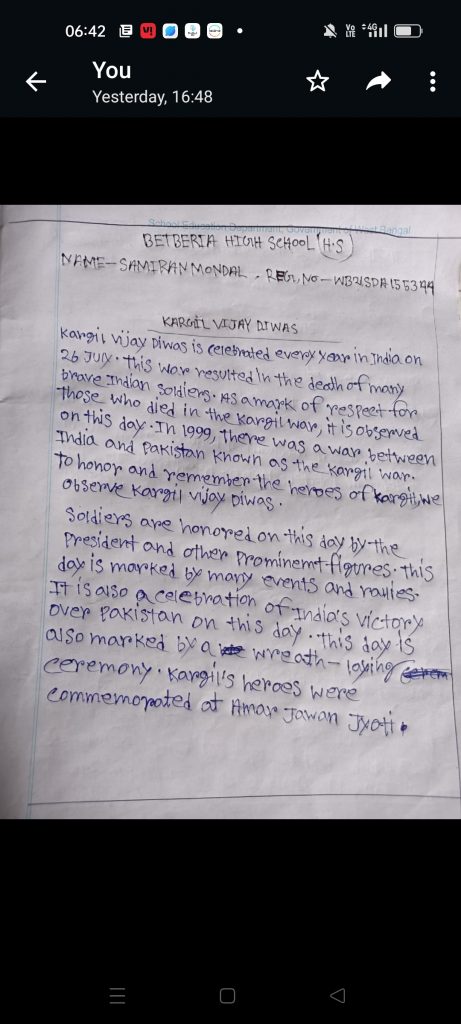 06:42
Vo LTE 4G
You
Yesterday, 16:48
School Education Department, Government of West Bangal
BETBERIA HIGH SCHOOL (H.S)
NAME-SAMIRAN MONDAL. REGI, NO-
KARGIL VIJAY DIWAS
Kargil vijay Diwas is celebrated every year in India on
26 July. This war resulted in the death of many
brave Indian soldiers. As a mark of respect for
those who died in the Kargil war, it is observed
on this day. In 1999, there was a war between
India and Pakistan known as the Kargil war.
To honor and remember the heroes of kargil, we
observe Kargil vijay Diwas.
Soldiers are honored on this day by the
President and other Prominemt figures. This
day is marked by many events and rallies.
It is also a celebration of India's victory
over Pakistan on this day. This day is
also marked by a wreath-laying
ceremony. Kargil's heroes were
commemorated at Amar Jawan Jyoti.